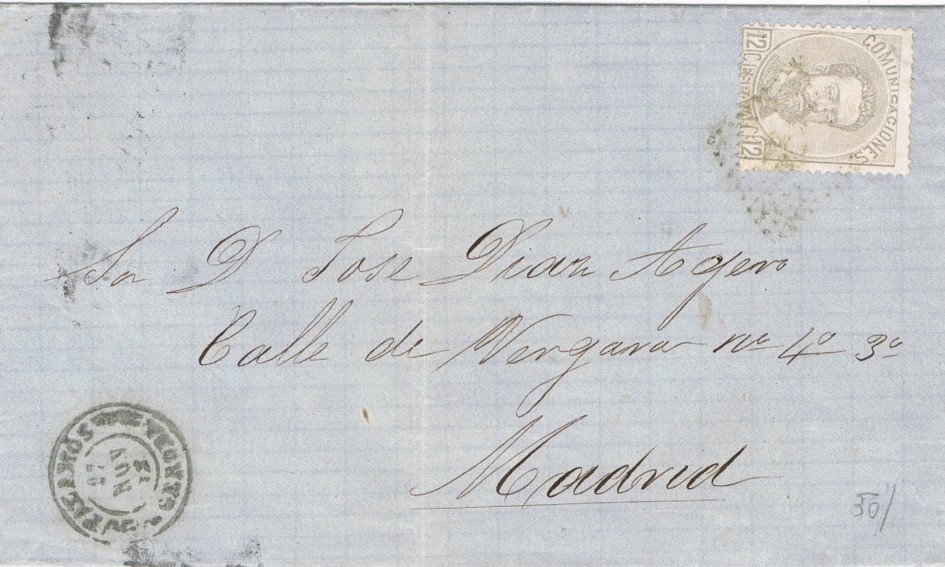 COMUNICACIONES
12 CS PESETA 12
Sor D Jose Diaz Agero
Calle de Vergara nº 4º 3º
Madrid
NOV
30/